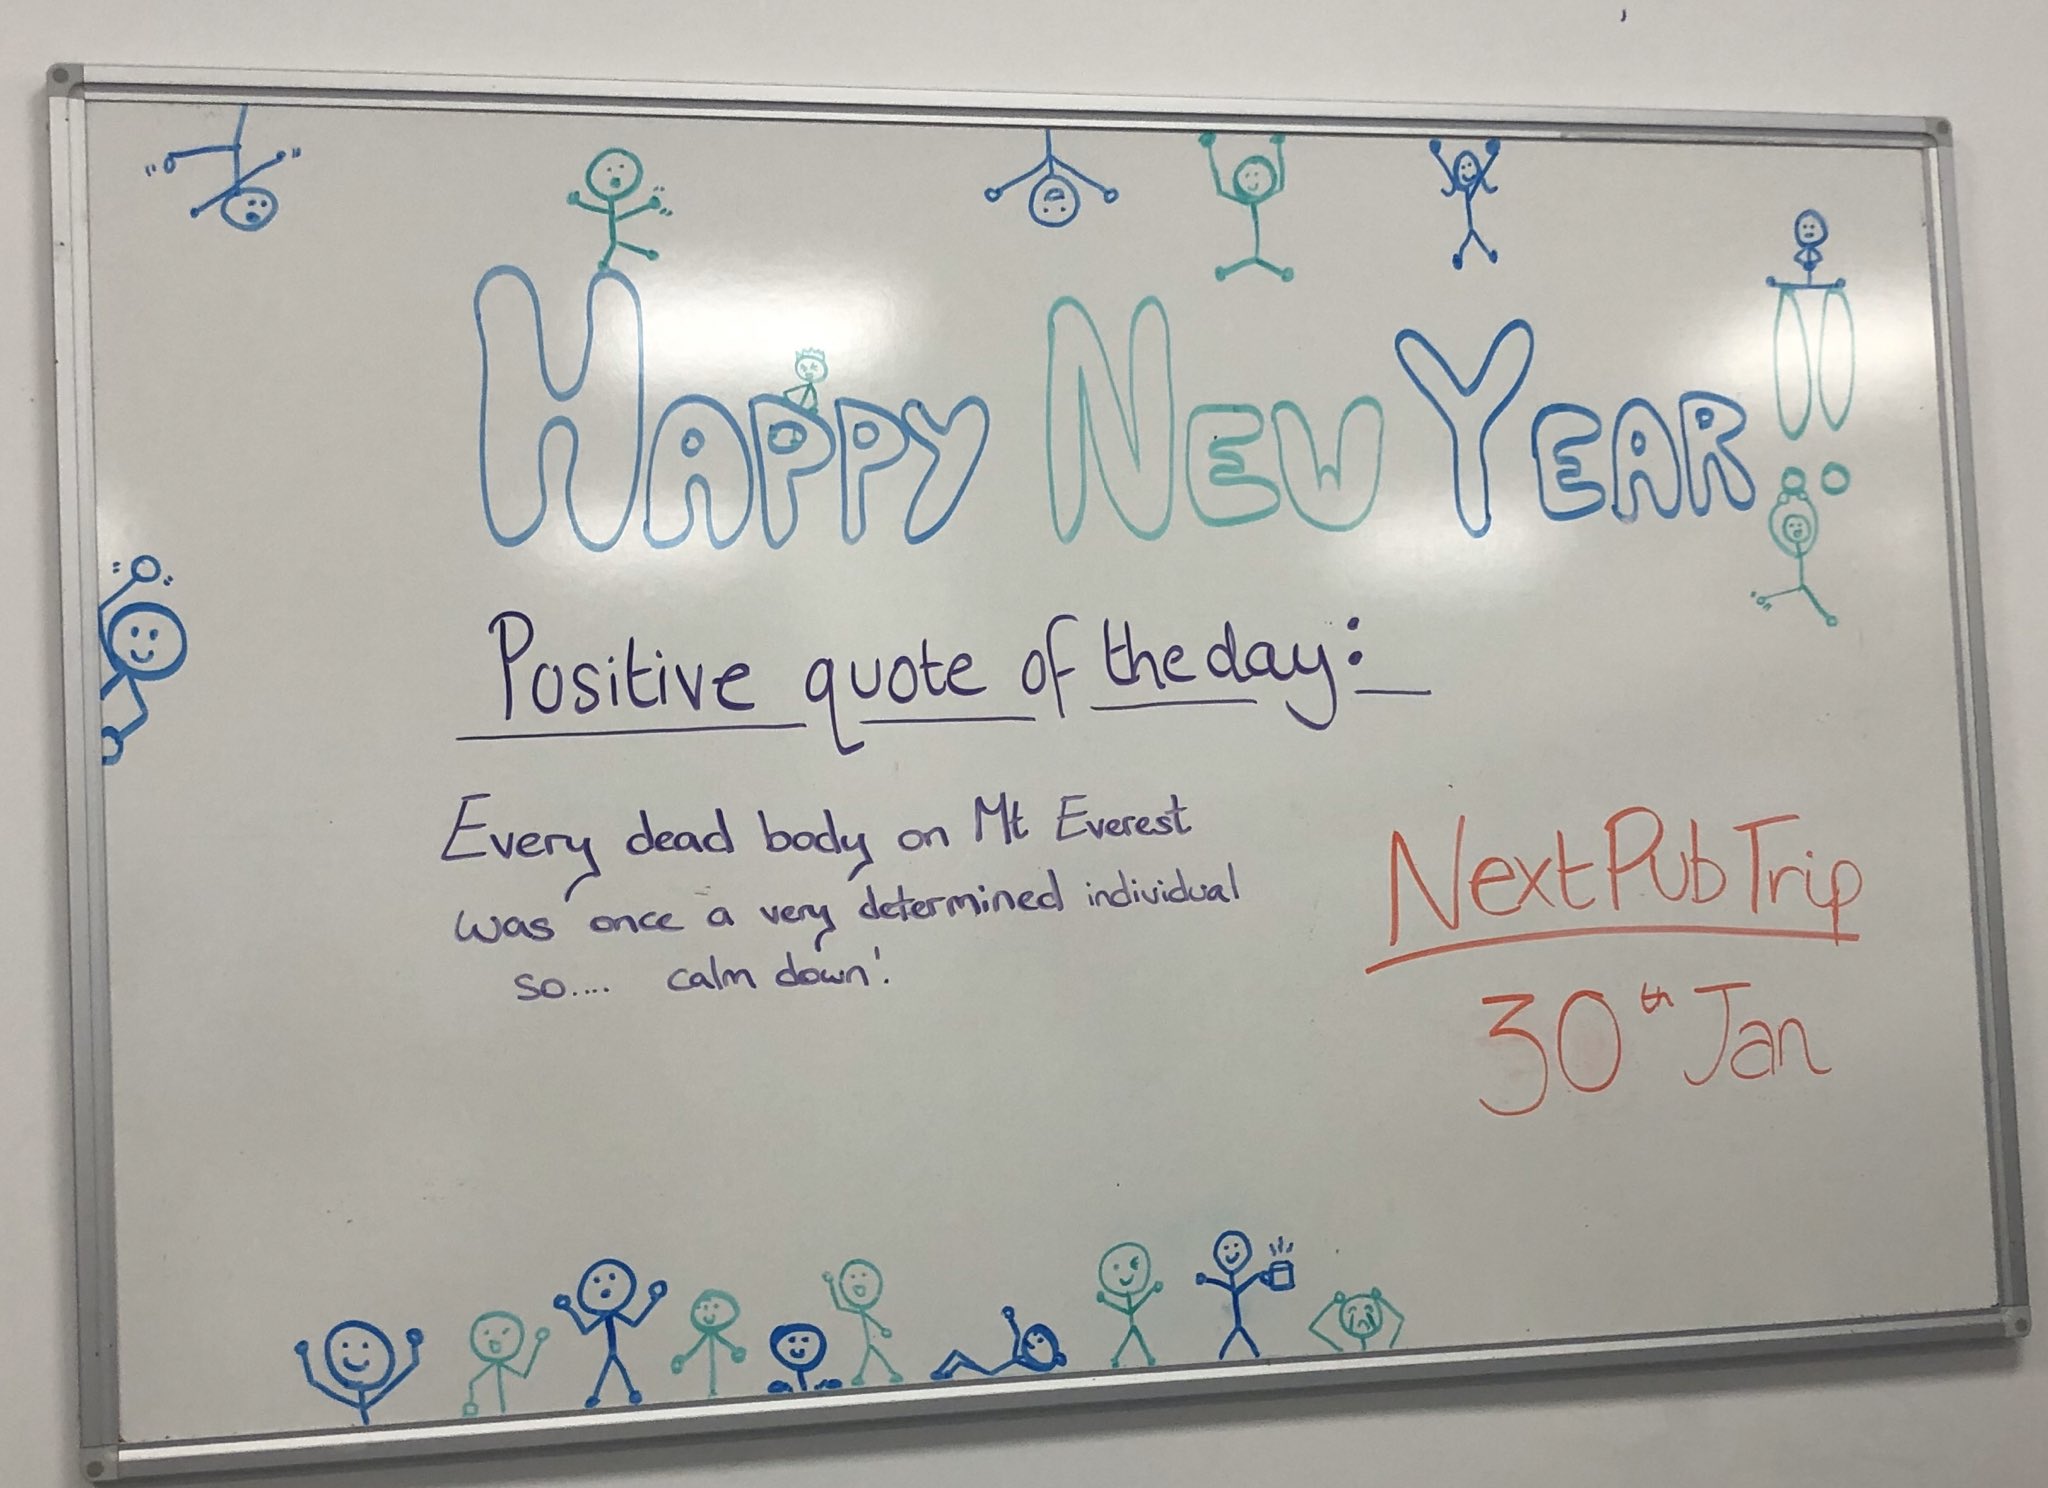 HAPPY NEW YEAR!!
Positive quote of the day:
Every dead body on Mt Everest
was once a very determined individual
so.... calm down!
Next Pub Trip
30th Jan